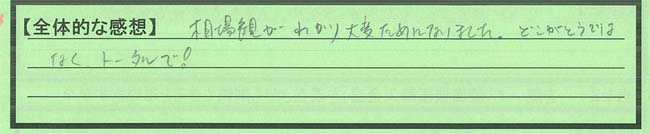 【全体的な感想】 相場観がわかり大変ためになりました。どこがどうでは
なく、トータルで!